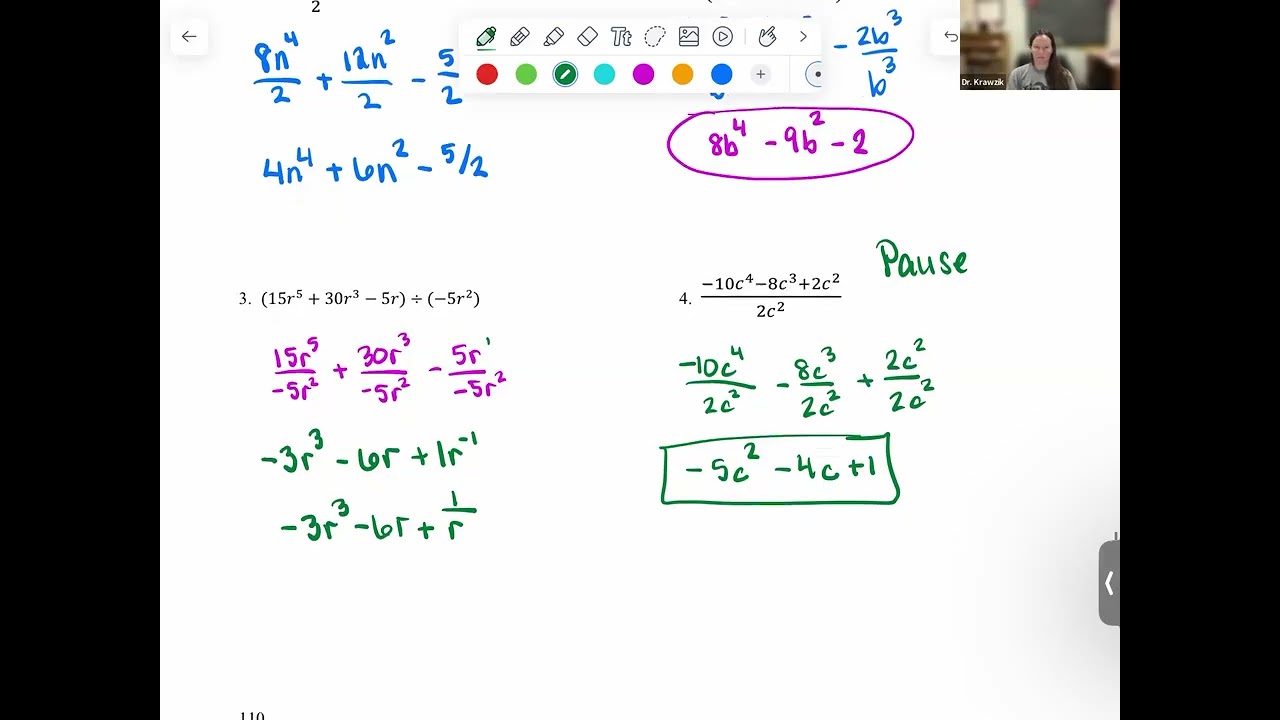 2
8n⁴/2 + 12n²/2 - 5/2
4n⁴ + 6n² - 5/2
- 2b³/b³
8b⁴ - 9b² - 2
Tt
Dr. Krawzik
Pause
3. (15r⁵ + 30r³ − 5r) ÷ (−5r²)
15r⁵/-5r² + 30r³/-5r² - 5r¹/-5r²
-3r³ - 6r + 1r⁻¹
-3r³ - 6r + 1/r
4. −10c⁴−8c³+2c²/2c²
-10c⁴/2c² - 8c³/2c² + 2c²/2c²
-5c² - 4c + 1
110